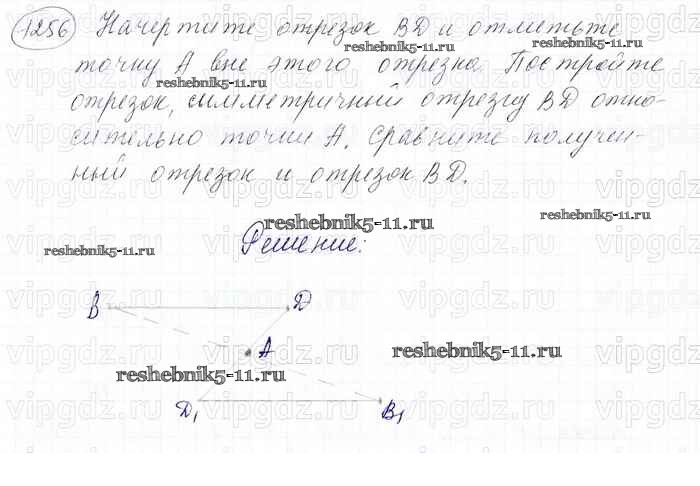 1256 Начертите отрезок ВД и отметьте
точку А вне этого отрезка. Постройте
отрезок, симметричный отрезку ВД отно-
сительно точки А. Сравните получен-
ный отрезок и отрезок ВД.
Решение:
В Д
А
Д₁ В₁
reshebnik5-11.ru
reshebnik5-11.ru
reshebnik5-11.ru
reshebnik5-11.ru
reshebnik5-11.ru
reshebnik5-11.ru
reshebnik5-11.ru
reshebnik5-11.ru
vipgdz.ru vipgdz.ru vipgdz.ru vipgdz.ru